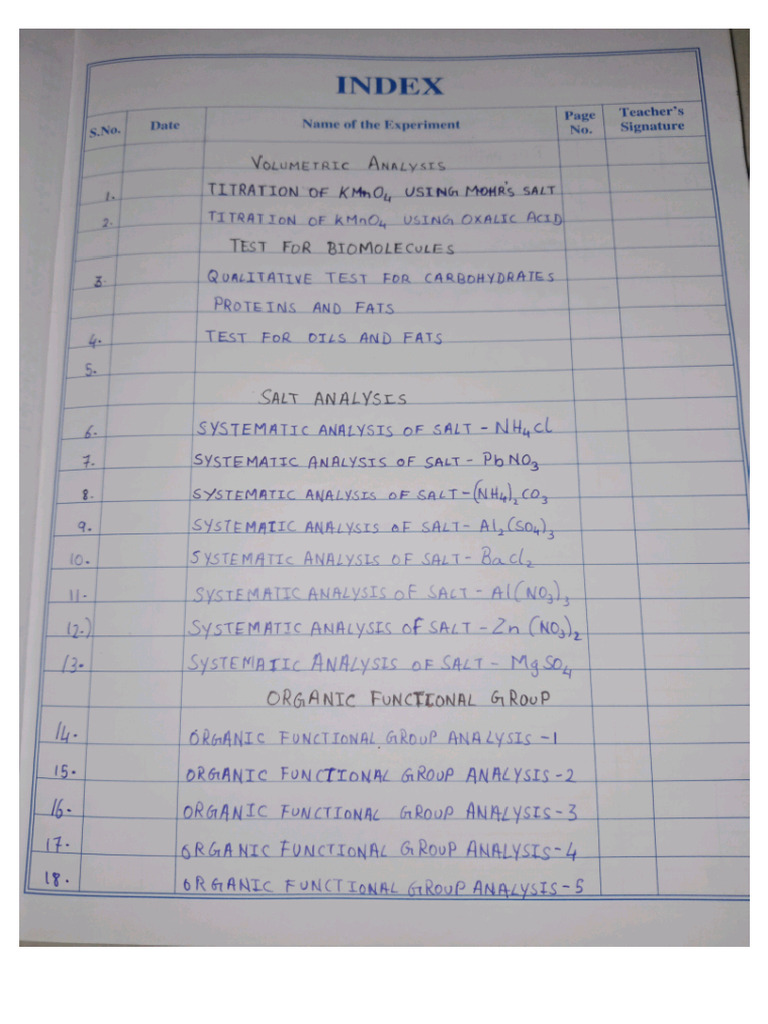 INDEX
S.No. Date Name of the Experiment Page No. Teacher's Signature
VOLUMETRIC ANALYSIS
1. TITRATION OF KMnO₄ USING MOHR'S SALT
2. TITRATION OF KMnO₄ USING OXALIC ACID
TEST FOR BIOMOLECULES
3. QUALITATIVE TEST FOR CARBOHYDRATES
PROTEINS AND FATS
4. TEST FOR OILS AND FATS
5.
SALT ANALYSIS
6. SYSTEMATIC ANALYSIS OF SALT - NH₄Cl
7. SYSTEMATIC ANALYSIS OF SALT - PbNO₃
8. SYSTEMATIC ANALYSIS OF SALT - (NH₄)₂CO₃
9. SYSTEMATIC ANALYSIS OF SALT - Al₂(SO₄)₃
10. SYSTEMATIC ANALYSIS OF SALT - BaCl₂
11. SYSTEMATIC ANALYSIS OF SALT - Al(NO₃)₃
12.) SYSTEMATIC ANALYSIS OF SALT - Zn(NO₃)₂
13. SYSTEMATIC ANALYSIS OF SALT - MgSO₄
ORGANIC FUNCTIONAL GROUP
14. ORGANIC FUNCTIONAL GROUP ANALYSIS - 1
15. ORGANIC FUNCTIONAL GROUP ANALYSIS - 2
16. ORGANIC FUNCTIONAL GROUP ANALYSIS - 3
17. ORGANIC FUNCTIONAL GROUP ANALYSIS - 4
18. ORGANIC FUNCTIONAL GROUP ANALYSIS - 5